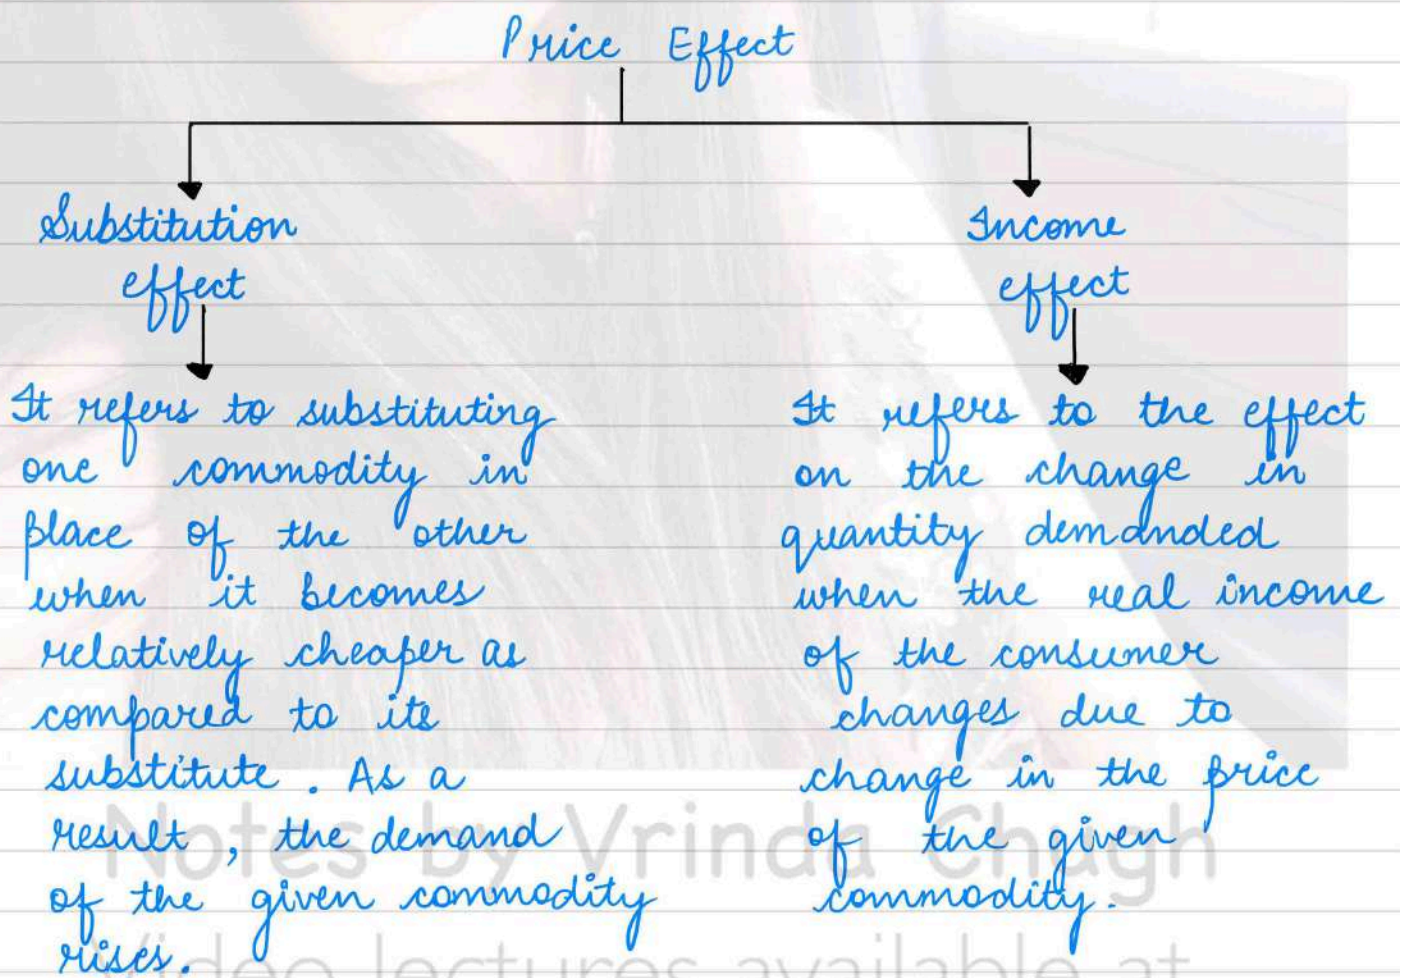 Price Effect
Substitution
effect
It refers to substituting
one commodity in
place of the other
when it becomes
relatively cheaper as
compared to its
substitute. As a
result, the demand
of the given commodity
rises.
Income
effect
It refers to the effect
on the change in
quantity demanded
when the real income
of the consumer
changes due to
change in the price
of the given
commodity.
Notes by Vrinda Chagh
Video lectures available at